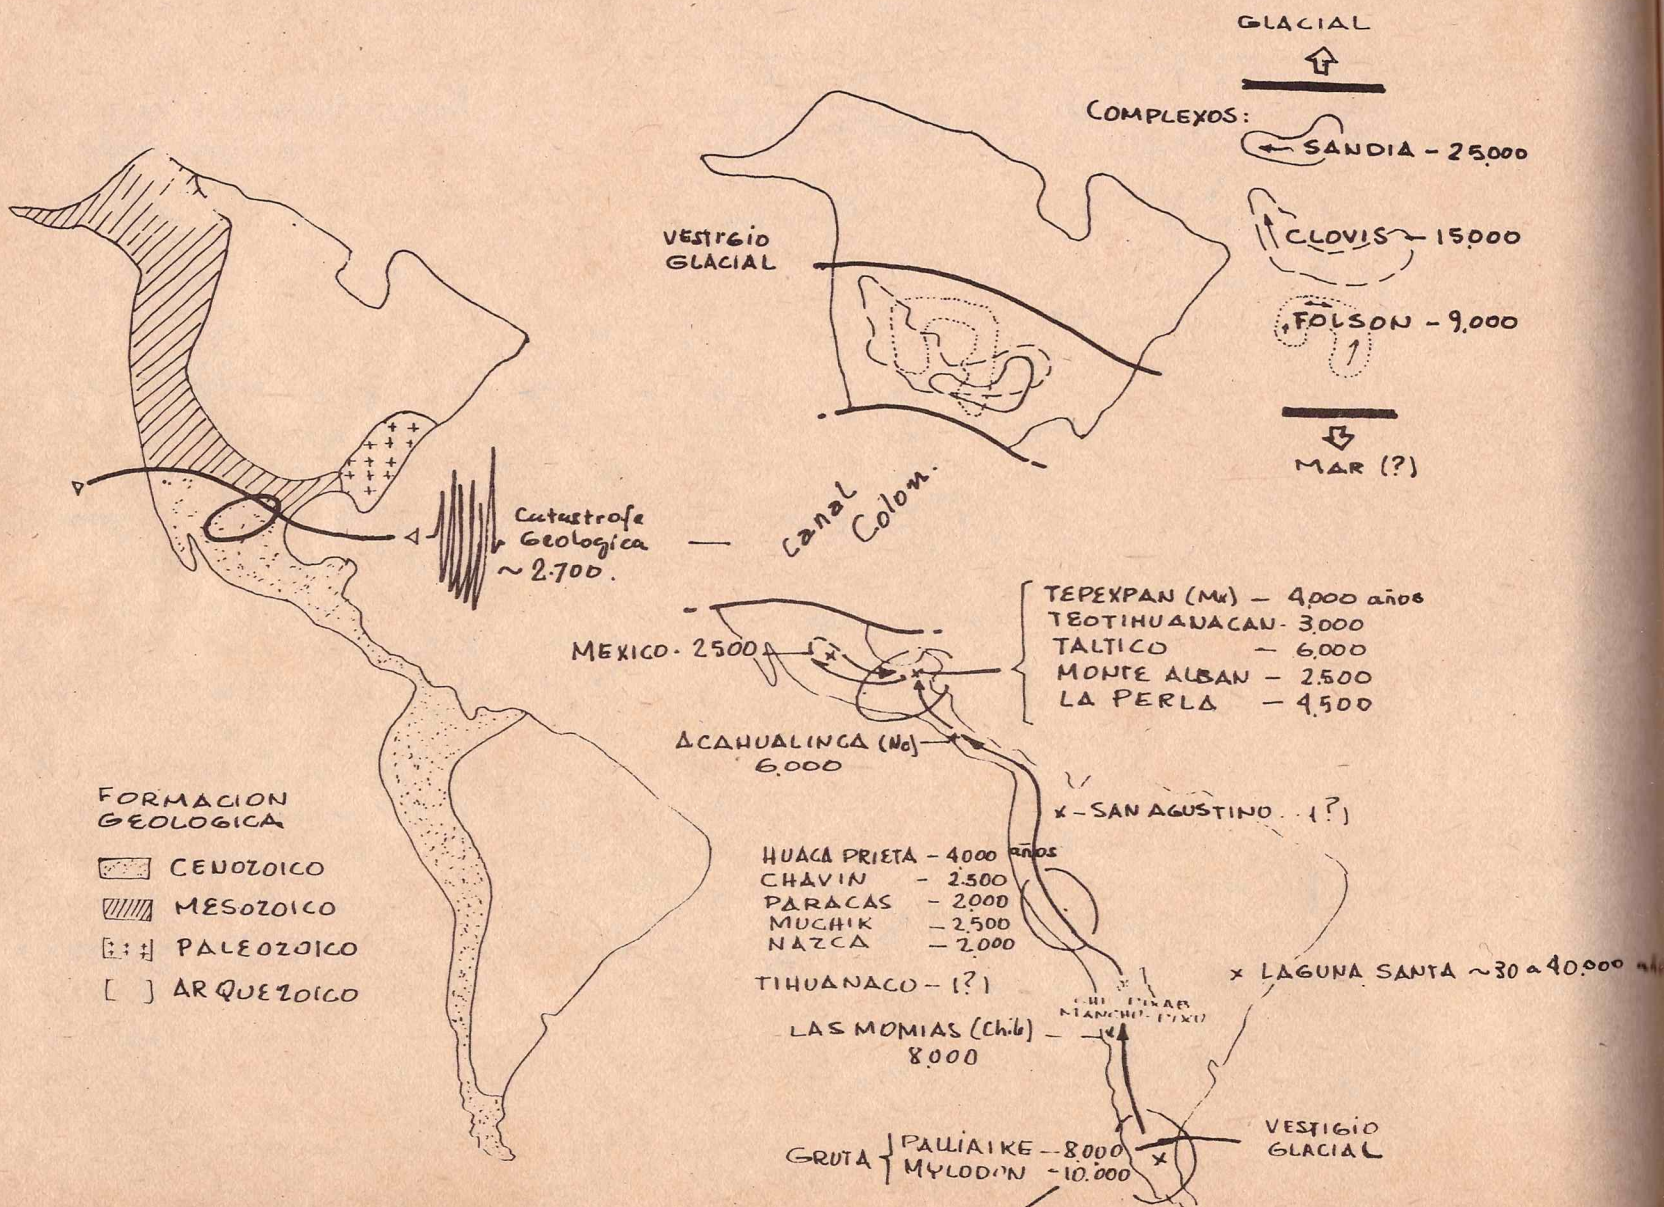 GLACIAL
COMPLEXOS:
SANDIA - 25.000
CLOVIS - 15.000
FOLSON - 9.000
MAR (?)
VESTIGIO
GLACIAL
Catastrofe
Geologica
~ 2.700.
canal
Colom.
MEXICO - 2500
TEPEXPAN (Mx) - 4.000 años
TEOTIHUANACAN - 3.000
TALTICO - 6.000
MONTE ALBAN - 2.500
LA PERLA - 4.500
ACAHUALINCA (Nc)
6.000
x - SAN AGUSTINO.. (?)
HUACA PRIETA - 4000 años
CHAVIN - 2.500
PARACAS - 2.000
MUCHIK - 2.500
NAZCA - 2.000
TIHUANACO - (?)
x LAGUNA SANTA ~30 a 40.000
MANCHO-PIXU
LAS MOMIAS (Chile)
8.000
GRUTA
PALLIAIKE - 8.000
MYLODON - 10.000
VESTIGIO
GLACIAL
FORMACION
GEOLOGICA
CENOZOICO
MESOZOICO
PALEOZOICO
ARQUEZOICO